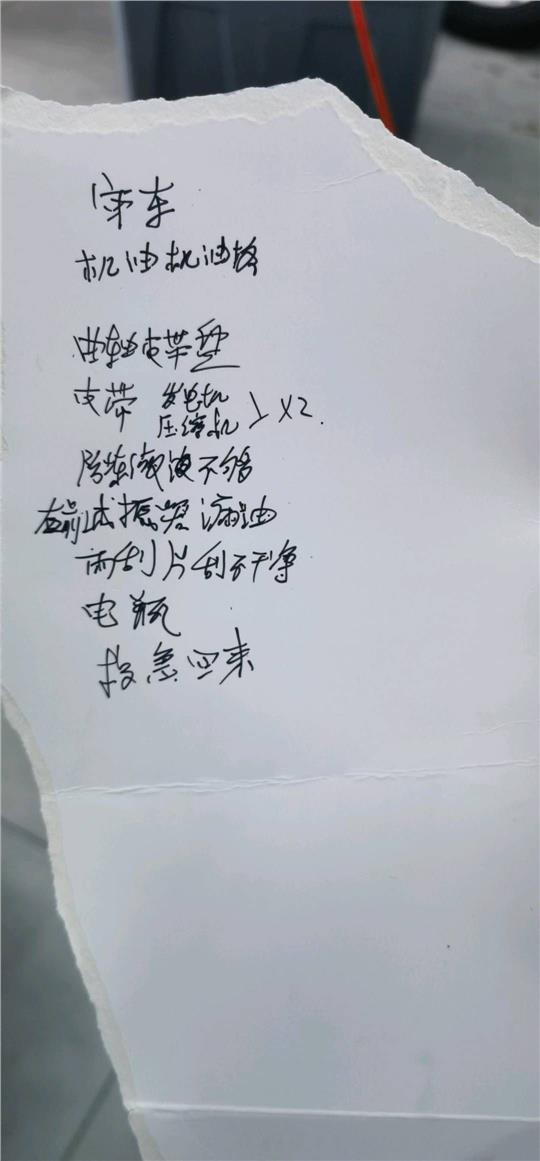 审车
机油机油格
曲轴皮带盘
皮带 发电机 压缩机 > X2.
防冻液不够
左前减振器漏油
雨刮片刮不干净
电瓶
救急回来